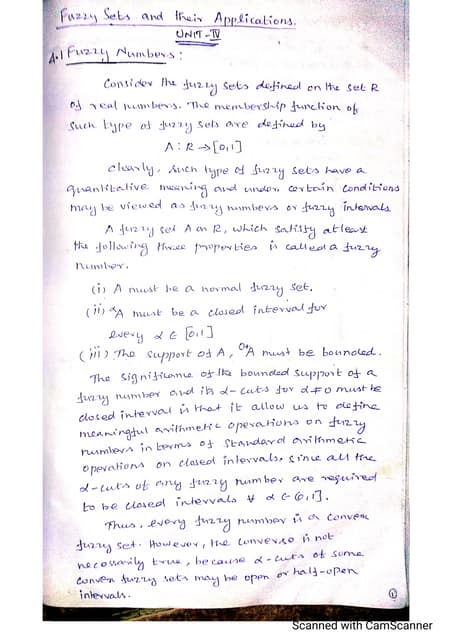 Fuzzy Sets and their Applications.
UNIT-IV
4.1 Fuzzy Numbers:
Consider the fuzzy sets defined on the set R
of real numbers. The membership function of
such type of fuzzy sets are defined by
A: R → [0,1]
clearly, such type of fuzzy sets have a
quantitative meaning and under certain conditions
may be viewed as fuzzy numbers or fuzzy intervals
A fuzzy set A on R, which satisfy atleast
the following three properties is called a fuzzy
number.
(i) A must be a normal fuzzy set.
(ii) ᵅA must be a closed interval for
every α ∈ [0,1]
(iii) The support of A, ⁰⁺A must be bounded.
The significance of the bounded support of a
fuzzy number and its α-cuts for α≠0 must be
closed interval is that it allow us to define
meaningful arithmetic operations on fuzzy
numbers in terms of standard arithmetic
operations on closed intervals, since all the
α-cuts of any fuzzy number are required
to be closed intervals ∀ α ∈ (0,1].
Thus, every fuzzy number is a convex
fuzzy set. However, the converse is not
necessarily true, because α-cuts of some
convex fuzzy sets may be open or half-open
intervals.
1
Scanned with CamScanner